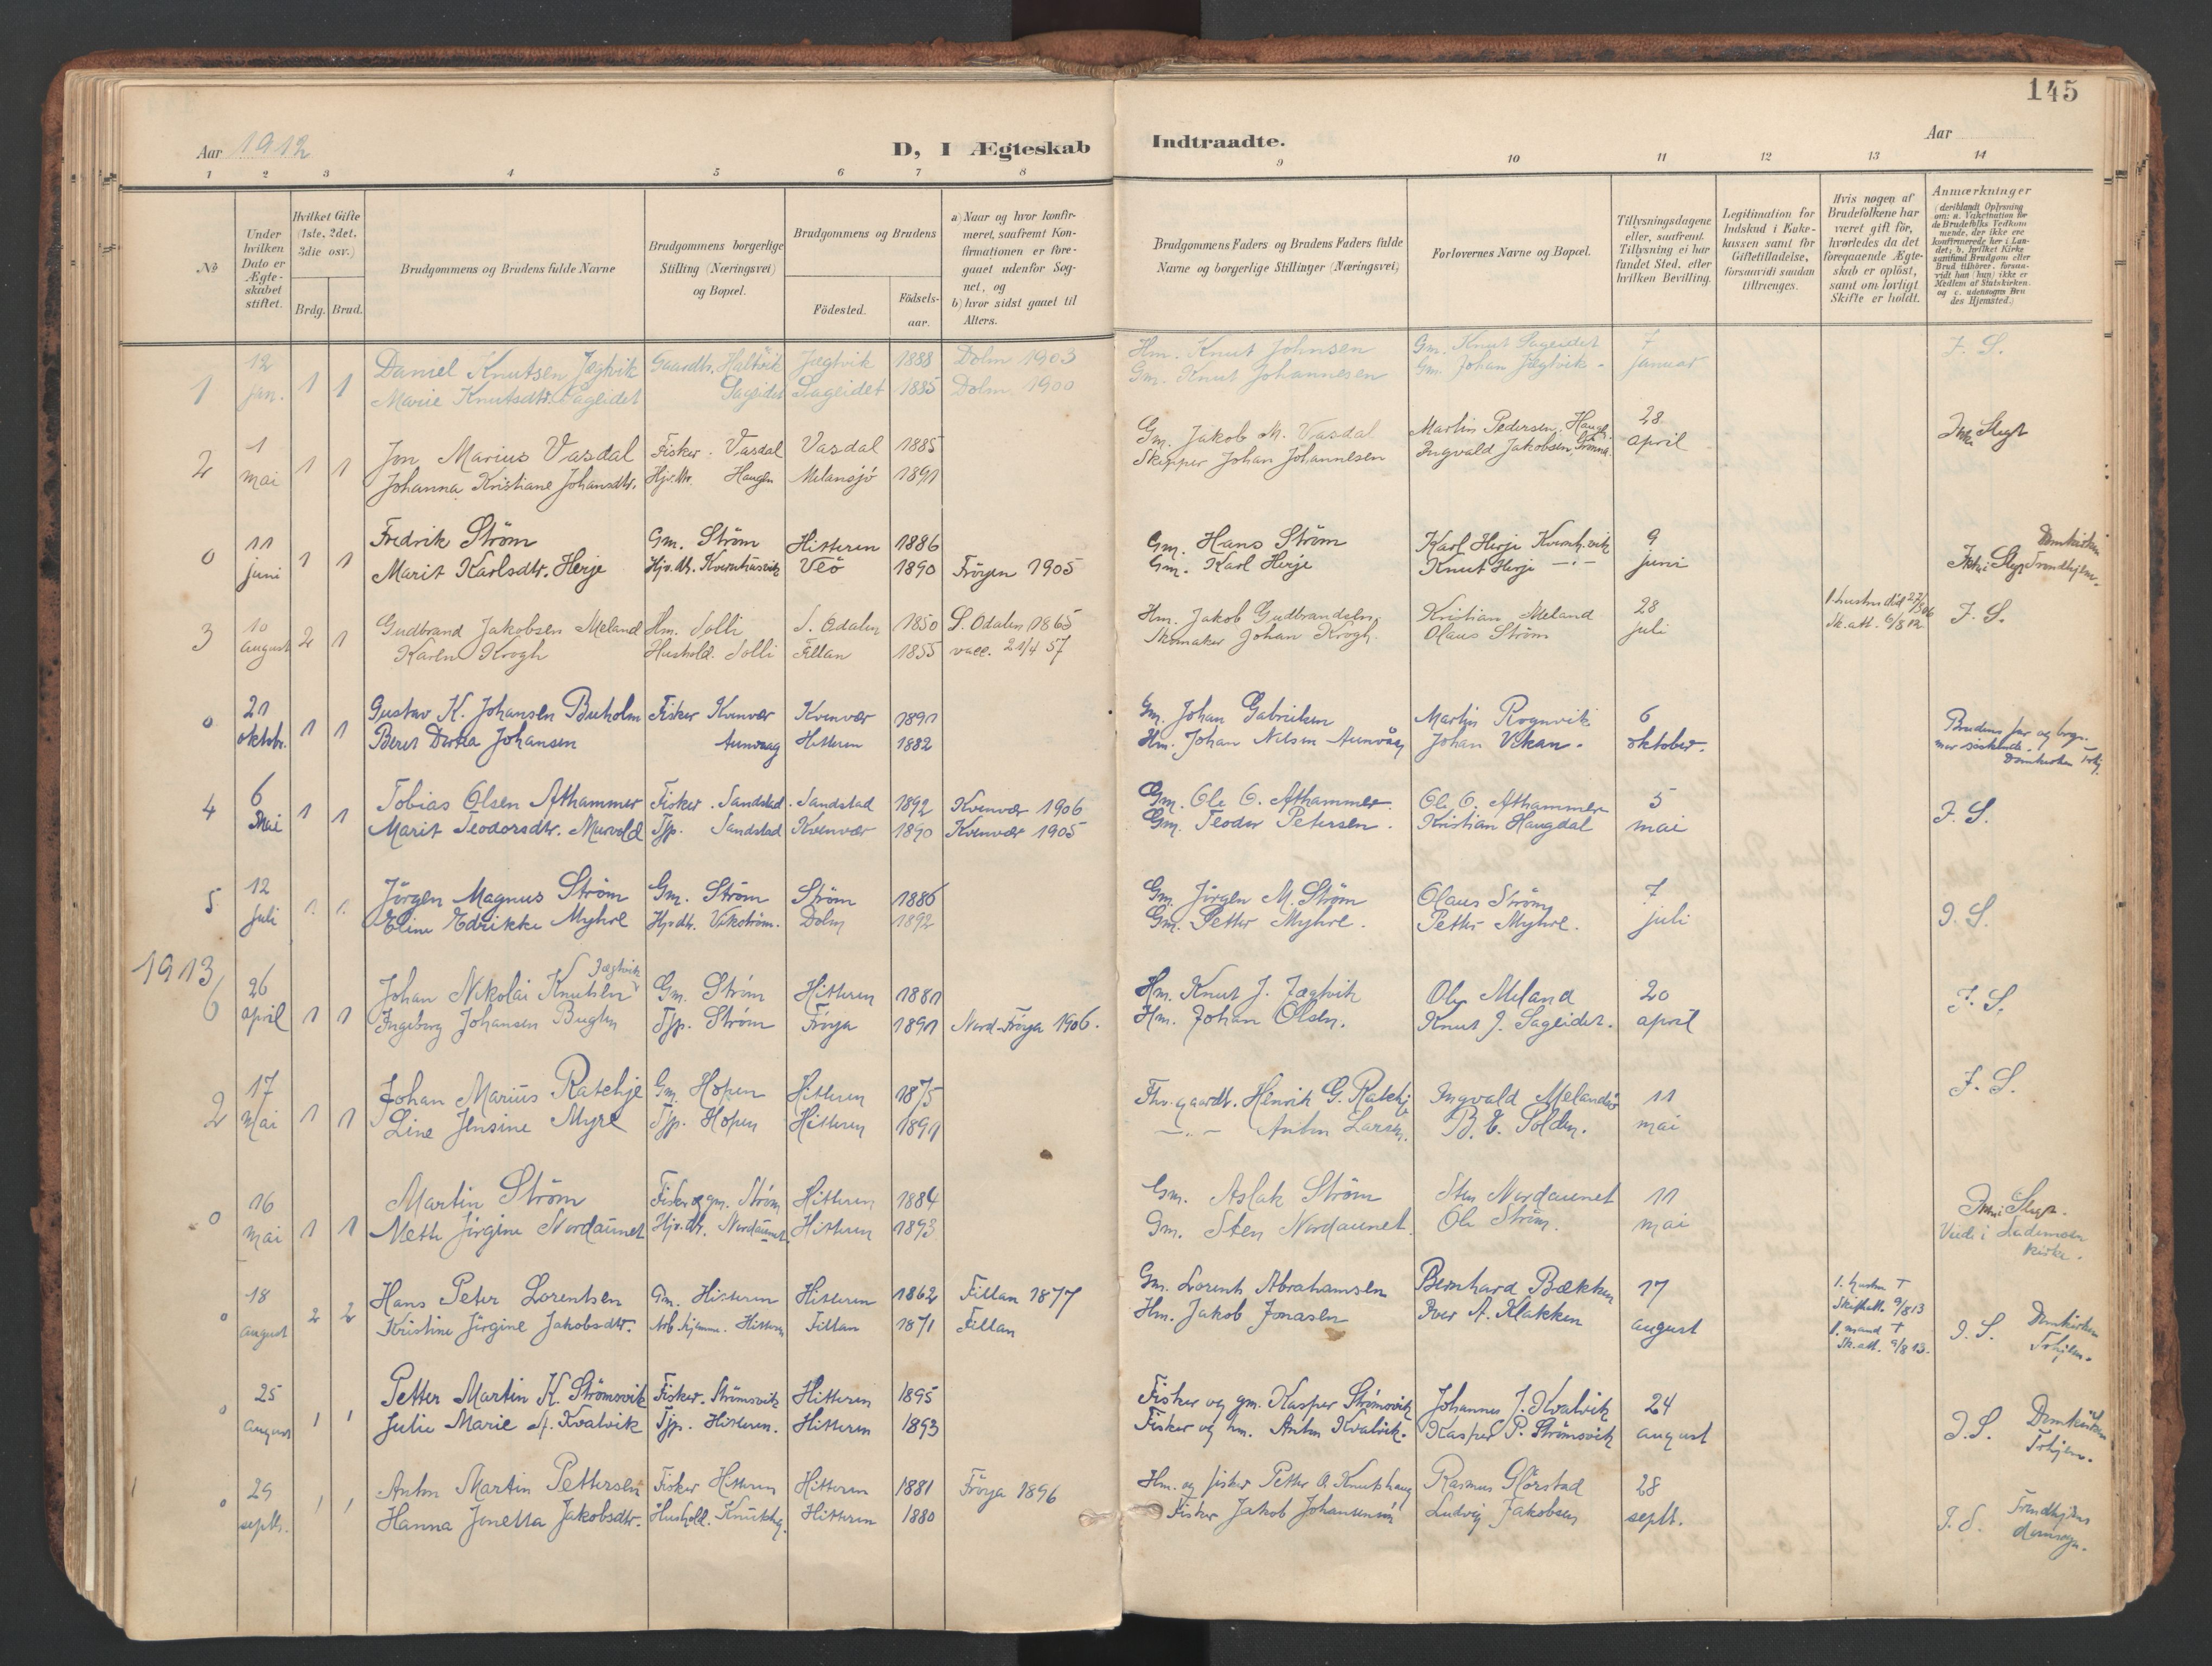 145
Aar 1912
D, I Ægteskab Indtraadte.
Aar
1 2 3 4 5 6 7 8 9 10 11 12 13 14
№
Under hvilken Dato er Ægteskabet stiftet.
Hvilket Gifte (1ste, 2det, 3die osv.)
Brdg. Brud.
Brudgommens og Brudens fulde Navne
Brudgommens borgerlige Stilling (Næringsvei) og Bopæl.
Brudgommens og Brudens
Födested.
Födselsaar.
a) Naar og hvor konfirmeret, saafremt Konfirmationen er foregaaet udenfor Sognet, og
b) hvor sidst gaaet til Alters.
Brudgommens Faders og Brudens Faders fulde Navne og borgerlige Stillinger (Næringsvei)
Forlovernes Navne og Bopæl.
Tillysningsdagene eller, saafremt Tillysning ei har fundet Sted, efter hvilken Bevilling.
Legitimation for Indskud i Enkekassen samt for Giftetilladelse, forsaavidt saadan tiltrænges.
Hvis nogen af Brudefolkene har været gift för, hvorledes da det foregaaende Ægteskab er oplöst, samt om lovligt Skifte er holdt.
Anmærkninger
(deriblandt Oplysning om: a. Vakcination for de Brudefolks Vedkommende, der ikke ere konfirmerede her i Landet; b. hvilket Kirkesamfund Brudgom eller Brud tilhörer, forsaavidt han (hun) ikke er Medlem af Statskirken, og c. udensogns Brudes Hjemsted.)
1 12 jan. 1 1 Daniel Knutsen Jægtvik Gaardbr. Haltvik Jægtvik 1888 Dolm 1903 Hm. Knut Johnsen Gm. Knut Sageidet 7 januar I. S.
Marie Knutsdtr. Sageidet Sageidet Sageidet 1885 Dolm 1900 Gm. Knut Johannesen Gm. Johan Jægtvik -
2 1 mai 1 1 Jon Marius Vasdal Fisker. Vasdal Vasdal 1885 Gm. Jakob M. Vasdal Martin Pedersen, Haugen 28 april Ikke Slegt
Johanna Kristiane Johansdtr. Hjv. dtr. Haugen Melansjö 1891 Skipper Johan Johannesen Ingvald Jakobsen,
0 11 juni 1 1 Fredrik Ström Gm. Ström Hitteren 1886 Gm. Hans Ström Karl Herje 9 juni Domkirken
Marit Karlsdtr. Herje Hjv. dtr. Kvernhusvik Veö 1890 Fröyen 1905 Gm. Karl Herje Knut Herje -"- Ikke i Slegt Trondhjem.
3 10 august 2 1 Gudbrand Jakobsen Meland Hm. Solli S. Odalen 1850 S. Odalen 1865 Hm. Jakob Gudbrandsen Kristian Meland 28 juli 1. hustru död 27/3 06 I. S.
Karen Krogh Hushold. Solli Fillan 1855 vacc. 21/4 57 Skomaker Johan Krogh. Olaus Ström Sk.att. 6/8 12
0 21 oktobr. 1 1 Gustav K. Johansen Buholm Fisker Kvenvær Kvenvær 1891 Gm. Johan Gabrielsen Martin Rognvik 6 oktober. Brudens far og brgr.
Beret Dortea Johansen Aunvaag Hitteren 1882 Hm. Johan Nilsen Aunvåg Johan Vikan. mor söskende. Domkirken Trhj.
4 6 Mai 1 1 Tobias Olsen Athammer Fisker. Sandstad. Sandstad 1892 Kvenvær 1906 Gm. Ole O. Athammer Ole O. Athammer 5 mai I. S.
Marit Teodorsdtr. Murvold Tjp. Sandstad Kvenvær 1890 Kvenvær 1905 Gm. Teodor Petersen. Kristian Haugdal
5 12 juli 1. 1. Jörgen Magnus Ström Gm. Ström Ström 1886 Gm. Jörgen M. Ström Olaus Ström 7 juli I. S.
Eline Edrikke Myhre Hjv. dtr. Vikström. Dolm 1892 Gm. Petter Myhre. Petter Myhre.
1913
6 26 april 1 1 Johan Nikolai Knutsen Jægtvik Gm. Ström Hitteren 1881 Hm. Knut J. Jægtvik Ole Meland 20 april I. S.
Ingeborg Johansen Buglen Tjp. Ström Fröya 1891 Nord-Fröya 1906. Hm. Johan Olsen. Knut J. Sageidet.
2 17 Mai 1 1 Johan Marius Ratchje Gm. Hopen Hitteren 1875 Fhv. gaardb. Henrik G. Ratchje Ingvald Melandsö 11 mai I. S.
Line Jensine Myre Tjp. Hopen Hitteren 1891 -"- Anton Larsen. B. E. Solden.
0 16 mai 1 1 Martin Ström Fisker og gm. Ström Hitteren 1884 Gm. Aslak Ström Sten Nordaunet 11 mai Ikke i Slegt.
Mette Jörgine Nordaunet Hjv. dtr. Nordaunet. Hitteren 1893 Gm. Sten Nordaunet. Ole Ström. Viede i Lademoen kirke.
0 18 august 2 2 Hans Peter Lorentsen Gm. Hitteren Hitteren 1862 Fillan 1877 Gm. Lorents Abrahamsen Bernhard Bækken 17 august 1. hustru † Skifteatt. 9/8 13 I. S. Domkirken
Kristine Jörgine Jakobsdtr. Arb. hjemme. Hitteren Fillan 1871 Fillan Hm. Jakob Jonasen Iver A. Klakken 1. mand † Sk.att. 9/8 13. Trhjem.
0 25 august 1 1 Petter Martin K. Strömsvik Fisker. Strömsvik Hitteren 1895 Fisker og gm. Kasper Strömsvik Johannes J. Kvalvik 24 august I. S. Domkirken
Julie Marie A. Kvalvik Tjp. Hitteren. Hitteren 1893 Fisker og hm. Anton Kvalvik. Kasper P. Strömsvik Trhjem.
0 29 septbr. 1 1 Anton Martin Pettersen Fisker Hitteren Hitteren 1881 Fröya 1896 Hm. og fisker Petter A. Knutshaug Rasmus Glörstad 28 septb. I. S. Trondhjems
Hanna Jonetta Jakobsdtr. Hushold. Knutshg. Hitteren 1880 Fisker Jakob Johannessen Ludvig Jakobsen domsogn.